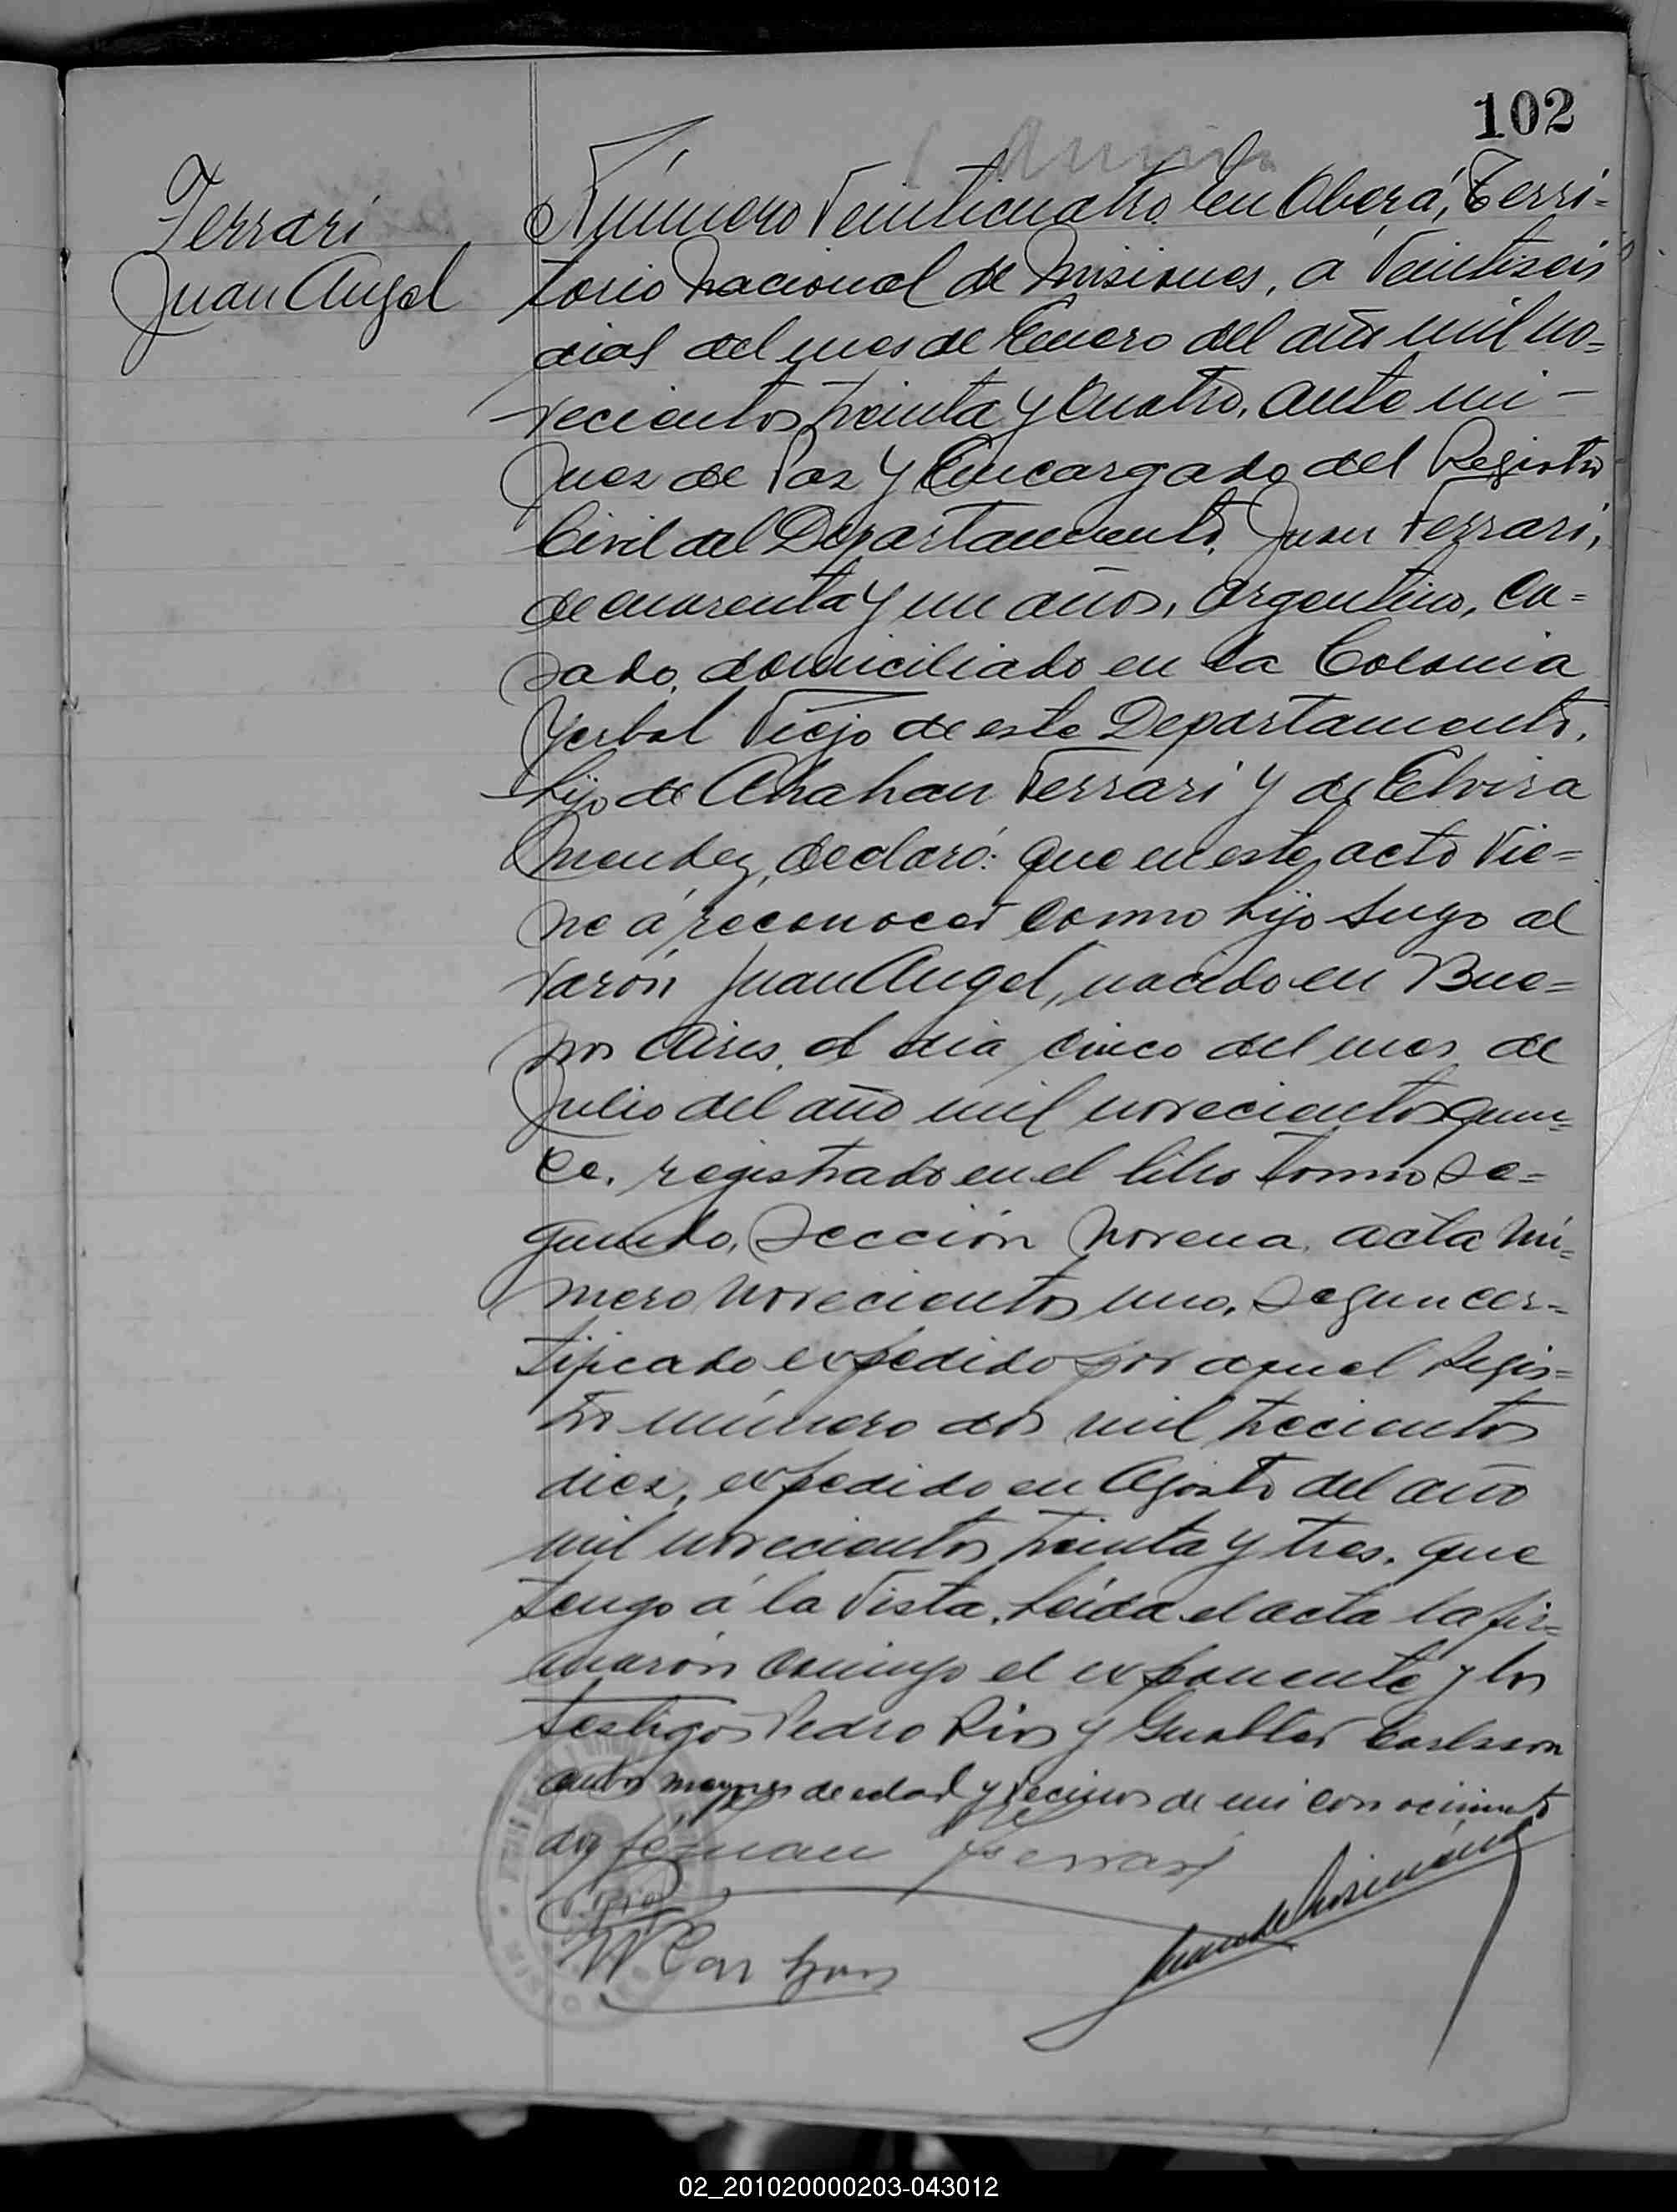 102
Ferrari
Juan Angel
Número Veinticuatro. En Oberá, Terri=
torio Nacional de Misiones, a Veintiseis
dias del mes de Enero del año mil no=
vecientos treinta y cuatro, ante mi -
Juez de Paz y Encargado del Registro
Civil del Departamento, Juan Ferrari,
de cuarenta y un años, argentino, ca=
sado, domiciliado en la Colonia
Yerbal Viejo de este Departamento,
hijo de Ahahan Ferrari y de Elvira
Mendez, declaró: que en este acto vie=
ne á reconocer como hijo suyo al
varón Juan Angel, nacido en Bue=
nos Aires, el dia cinco del mes de
Julio del año mil novecientos quin=
ce, registrado en el libro tomo se=
gundo, Sección Novena, acta nú=
mero novecientos uno, segun cer=
tificado expedido por aquel Regis=
tro número dos mil trecientos
diez, expedido en Agosto del año
mil novecientos treinta y tres, que
tengo á la vista. Leída el acta la fir=
marón conmigo el exponente y los
testigos Pedro Rios y Gualter Carlsson
ambos mayores de edad y vecinos de mi conocimiento
doy fé- Juan Ferrari
P. Rios
W Carlson
02_201020000203-043012